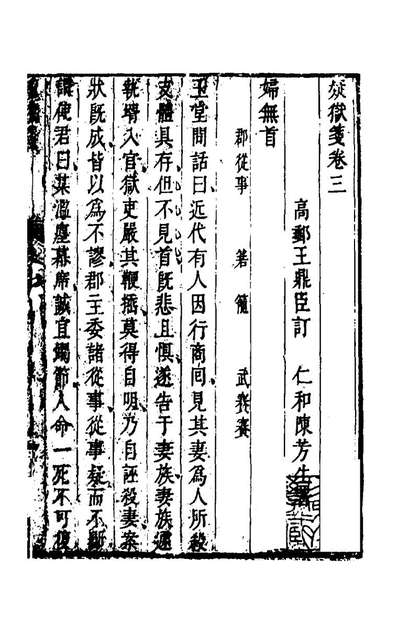 疑獄箋卷三
高郵王鼎臣訂 仁和陳芳生
婦無首
郡從事 箬籠 武
玉堂閒話曰近代有人因行商回見其妻為人所殺
支體具存但不見首既悲且懼遂告于妻族妻族
執壻入官獄吏嚴其鞭捶莫得自明乃自誣殺妻案
狀既成皆以為不謬郡主委諸從事從事疑而不斷
使君曰某濫塵幕席誠宜竭節人命一死不可復